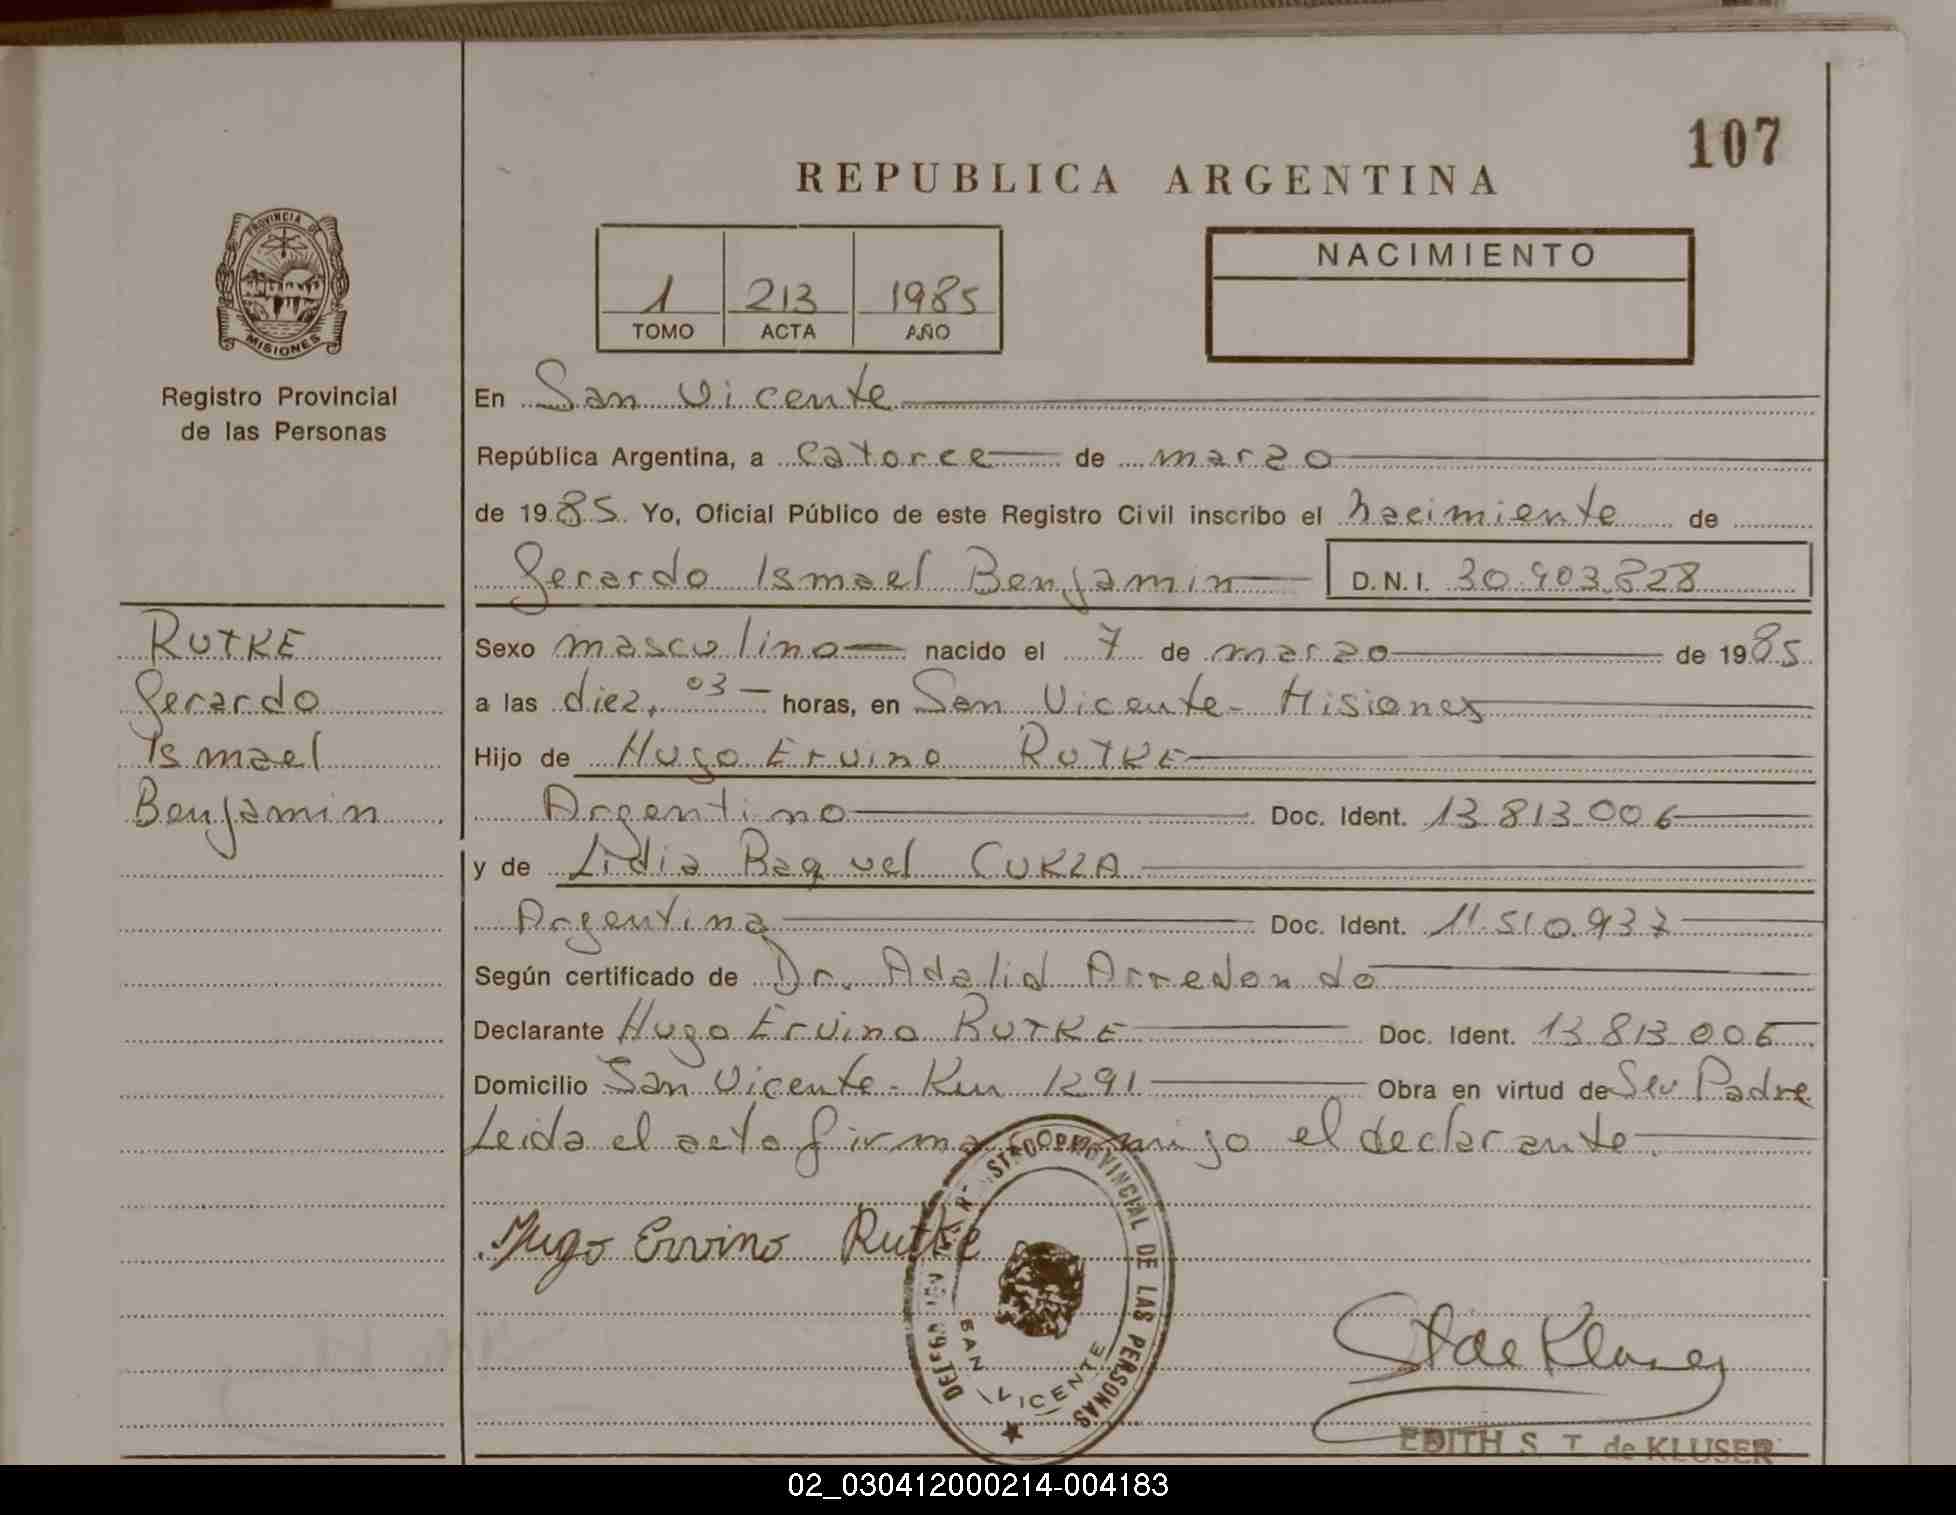 107
REPUBLICA ARGENTINA
PROVINCIA DE
MISIONES
Registro Provincial
de las Personas
1 213 1985
TOMO ACTA AÑO
NACIMIENTO
En San Vicente
República Argentina, a Catorce de marzo
de 1985 Yo, Oficial Público de este Registro Civil inscribo el nacimiento de
Gerardo Ismael Benjamin D.N.I. 30.903.828
RUTKE
Gerardo
Ismael
Benjamin
Sexo masculino nacido el 7 de marzo de 1985
a las diez, 03 horas, en San Vicente - Misiones
Hijo de Hugo Ervino RUTKE
Argentino Doc. Ident. 13.813.006
y de Lidia Raquel CUKLA
Argentina Doc. Ident. 11.510.937
Según certificado de Dr. Adalid Arredondo
Declarante Hugo Ervino RUTKE Doc. Ident. 13.813.006
Domicilio San Vicente - Km 1291 Obra en virtud de Ser Padre
Leida el acta firma conmigo el declarante.
Hugo Ervino Rutke
PROVINCIAL DE LAS PERSONAS
SAN VICENTE
EDITH S. T. de KLUSER
02_030412000214-004183